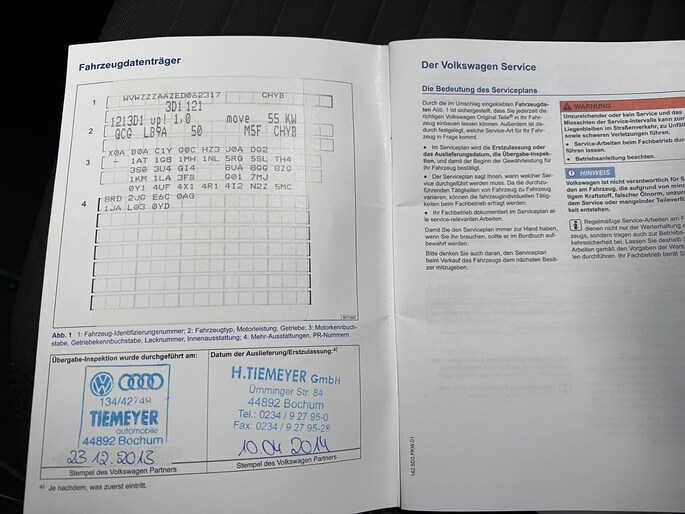 Fahrzeugdatenträger
1 WVWZZZAAZED062317 CHYB
3D1 121
1213D1 up! 1,0 move 55 KW
2 GCG LB9A 50 M5F CHYB
X0A B0A C1Y G0C HZ3 J0A DG2
3 - 1AT 1G8 1MH 1NL 5RG 5SL TH4
3S0 3U4 GI4 8UA 8GG 8ZQ
1KM 1LA 3FB G01 7MJ
0Y1 4UF 4X1 4R1 4I2 N2Z 5MC
4 8RD 2JG E6C 0AG
1JA L03 0YD
Abb. 1 1: Fahrzeug-Identifizierungsnummer; 2: Fahrzeugtyp, Motorleistung, Getriebe; 3: Motorkennbuch-
stabe, Getriebekennbuchstabe, Lacknummer, Innenausstattung; 4: Mehr-Ausstattungen, PR-Nummern.
Übergabe-Inspektion wurde durchgeführt am:
134/42749
TIEMEYER
automobile
44892 Bochum
23.12.2013
Stempel des Volkswagen Partners
Datum der Auslieferung/Erstzulassung:a)
H.TIEMEYER GmbH
Ümminger Str. 84
44892 Bochum
Tel.: 0234 / 9 27 95-0
Fax: 0234 / 9 27 95-28
10.04.2014
Stempel des Volkswagen Partners
a) Je nachdem, was zuerst eintritt.
Der Volkswagen Service
Die Bedeutung des Serviceplans
Durch die im Umschlag eingeklebten Fahrzeugda-
ten Abb. 1 ist sichergestellt, dass Sie jederzeit die
richtigen Volkswagen Original Teile® in Ihr Fahr-
zeug einbauen lassen können. Außerdem ist da-
durch festgelegt, welche Service-Art für Ihr Fahr-
zeug in Frage kommt.
• Im Serviceplan wird die Erstzulassung oder
das Auslieferungsdatum, die Übergabe-Inspek-
tion, und damit der Beginn der Gewährleistung für
Ihr Fahrzeug bestätigt.
• Der Serviceplan sagt Ihnen, wann welcher Ser-
vice durchgeführt werden muss. Da die durchzu-
führenden Tätigkeiten von Fahrzeug zu Fahrzeug
variieren, können die fahrzeugindividuellen Tätig-
keiten beim Fachbetrieb erfragt werden.
• Ihr Fachbetrieb dokumentiert im Serviceplan al-
le service-relevanten Arbeiten.
Damit Sie den Serviceplan immer zur Hand haben,
wenn Sie ihn brauchen, sollte er im Bordbuch auf-
bewahrt werden.
Bitte denken Sie auch daran, den Serviceplan
beim Verkauf des Fahrzeugs dem nächsten Besit-
zer mitzugeben.
WARNUNG
Unzureichender oder kein Service und das
Missachten der Service-Intervalle kann zum
Liegenbleiben im Straßenverkehr, zu Unfäl
sowie schweren Verletzungen führen.
• Service-Arbeiten beim Fachbetrieb durch
führen lassen.
• Betriebsanleitung beachten.
HINWEIS
Volkswagen ist nicht verantwortlich für S
den am Fahrzeug, die aufgrund von mind
tigem Kraftstoff, falscher Ölnorm, unzurei
dem Service oder mangelnder Teileverfü
keit entstehen.
Regelmäßige Service-Arbeiten am F
dienen nicht nur der Werterhaltung d
zeugs, sondern tragen auch zur Betriebs-
kehrssicherheit bei. Lassen Sie deshalb S
Arbeiten gemäß den Vorgaben der Wartu
len durchführen. Ihr Fachbetrieb berät S
142.5D3.PKW.01